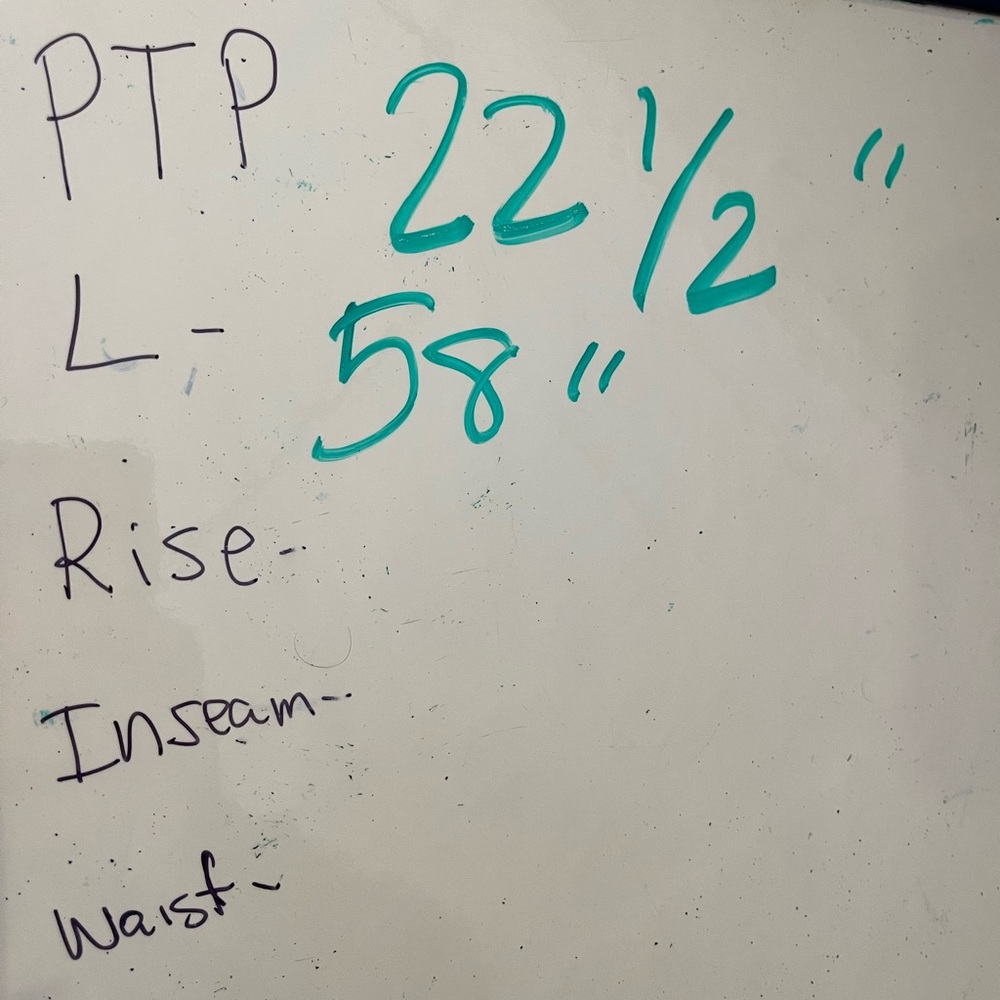 PTP 22 1/2 "
L - 58 "
Rise -
Inseam --
Waist -